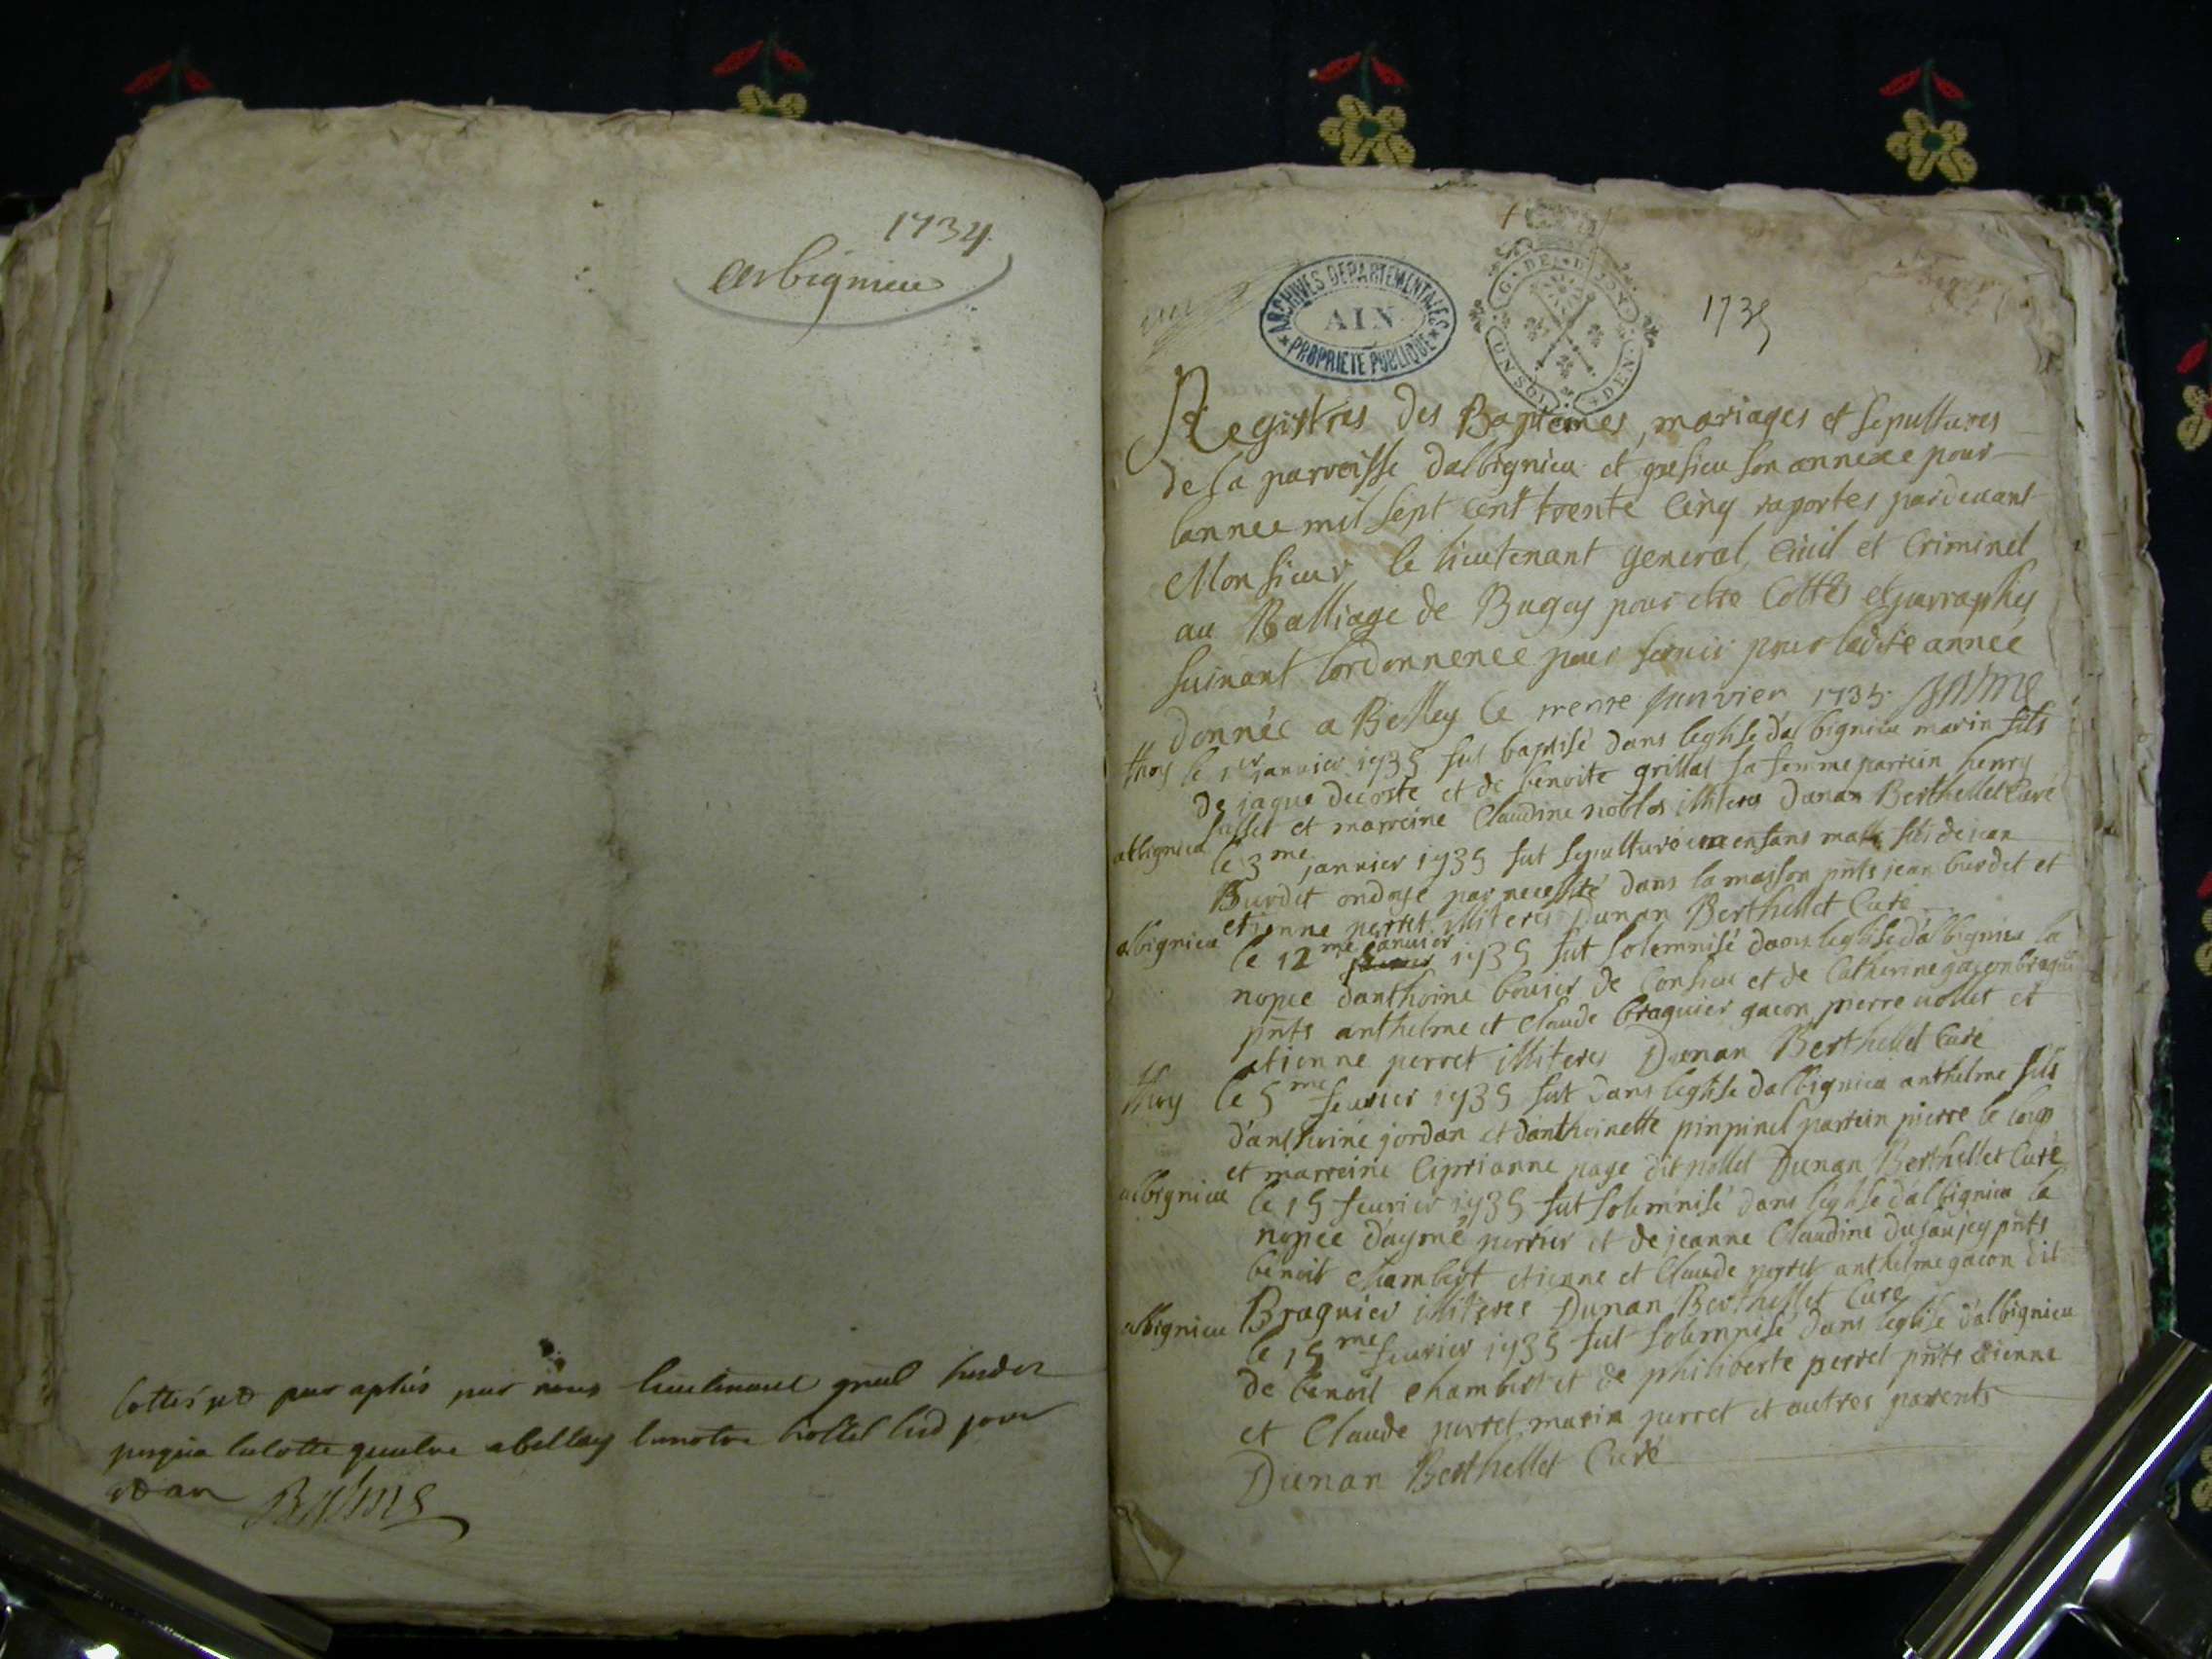 1734
Arbignieu
Cottés et paraphés par nous lieutenant gnal susdit
jusqua la cotte quatre a bellay en notre hostel lesd jour
et an Balme
ARCHIVES DEPARTEMENTALES
AIN
PROPRIETE PUBLIQUE
G. DE DIJON
UN SOL DEN.
1735
Registres des Baptemes, mariages et sepultures
de la parroisse dalbignieu et gresieu son annexe pour
lannee mil sept cent trente cinq raportes pardeuant
Monsieur le lieutenant general, ciuil et Criminel
au Balliage de Bugey pour etre Cottés et parraphés
suiuant lordonnence pour seruir pour ladite année
donnée a Belley le trente Janvier 1735. Balme
thoy le 1er januier 1735 fut baptisé dans leglise dalbignieu marin fils
de jaque decoste et de benoite grillat sa femme parrein henry
et marreine Claudine illiteres Dunan Berthellet Curé
albignieu le 3me januier 1735 fut sepulturé un enfans male fils de jean
Burdet ondoye par necessité dans la maison pnts jean burdet et
etienne perret illiteres Dunan Berthellet Curé
albignieu le 12me januier 1735 fut solemnisé dans leglise dalbignieu la
nopce danthoine bouuier de Conzieu et de Catherine gacon braguier
pnts anthelme et Claude braguier gacon pierre et
etienne perret illiteres Dunan Berthellet Curé
thoy le 5me feurier 1735 fut dans leglise dalbignieu anthelme fils
d'anthoine jordan et d'anthoinette pinpinel parrein pierre
et marreine Ciprianne page dit pollet Dunan Berthellet Curé
albignieu le 15 feurier 1735 fut solemnisé dans leglise dalbignieu la
nopce d'aymé perrier et de jeanne Claudine dusaujey pnts
benoit Chambert etienne et Claude perret anthelme gacon dit
Braguier illiteres Dunan Berthellet Curé
albignieu le 15me feurier 1735 fut solemnisé dans leglise d'albignieu
de benoit Chambert et de philiberte perret pnts etienne
et Claude perret marin perret et autres parents
Dunan Berthellet Curé